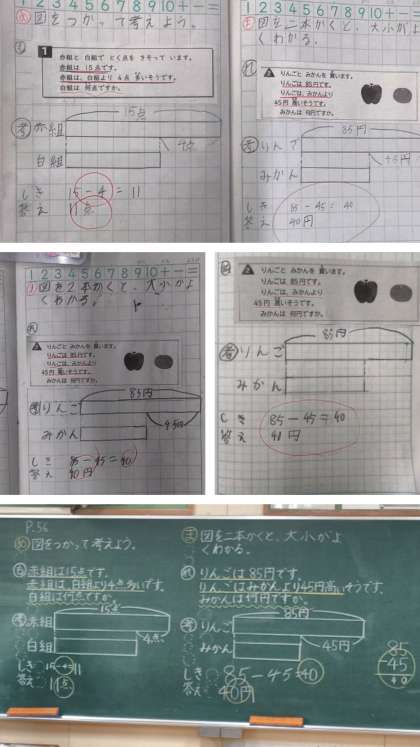 1 2 3 4 5 6 7 8 9 10 + − =
め 図をつかって考えよう。
1
赤組と 白組で とく点を きそって います。
赤組は 15点です。
赤組は、白組より 4点 多いそうです。
白組は 何点ですか。
15点
考 赤組
4点
白組
しき 15-4=11
答え 11点
1 2 3 4 5 6 7 8 9 10 + − =
ま 図を二本かくと、大小がよ
くわかる。
れ
2 りんごと みかんを 買います。
りんごは 85円です。
りんごは、みかんより
45円 高いそうです。
みかんは 何円ですか。
85円
考 りんご
45円
みかん
しき 85-45=40
答え 40円
1 2 3 4 5 6 7 8 9 10 + − =
ま 図を2本かくと、大小がよ
くわかる。
れ
2 りんごと みかんを 買います。
りんごは 85円です。
りんごは、みかんより
45円 高いそうです。
みかんは 何円ですか。
85円
考 りんご
45円
みかん
しき 85-45=40
答え 40円
2 りんごと みかんを 買います。
りんごは 85円です。
りんごは、みかんより
45円 高いそうです。
みかんは 何円ですか。
85円
考 りんご
みかん
しき 85-45=40
答え 40円
P.56
め 図をつかって考えよう。
赤組は15点です。
赤組は白組より4点多いです。
白組は何点ですか。
15点
考 赤組
4点
白組
しき 15-4=11
答え 11点
ま 図を二本かくと、大小がよ
くわかる。
れ りんごは85円です。
りんごはみかんより45円高いそうです。
みかんは何円ですか。
85円
考 りんご
45円
みかん
しき 85-45=40
答え 40円
85
-45
40